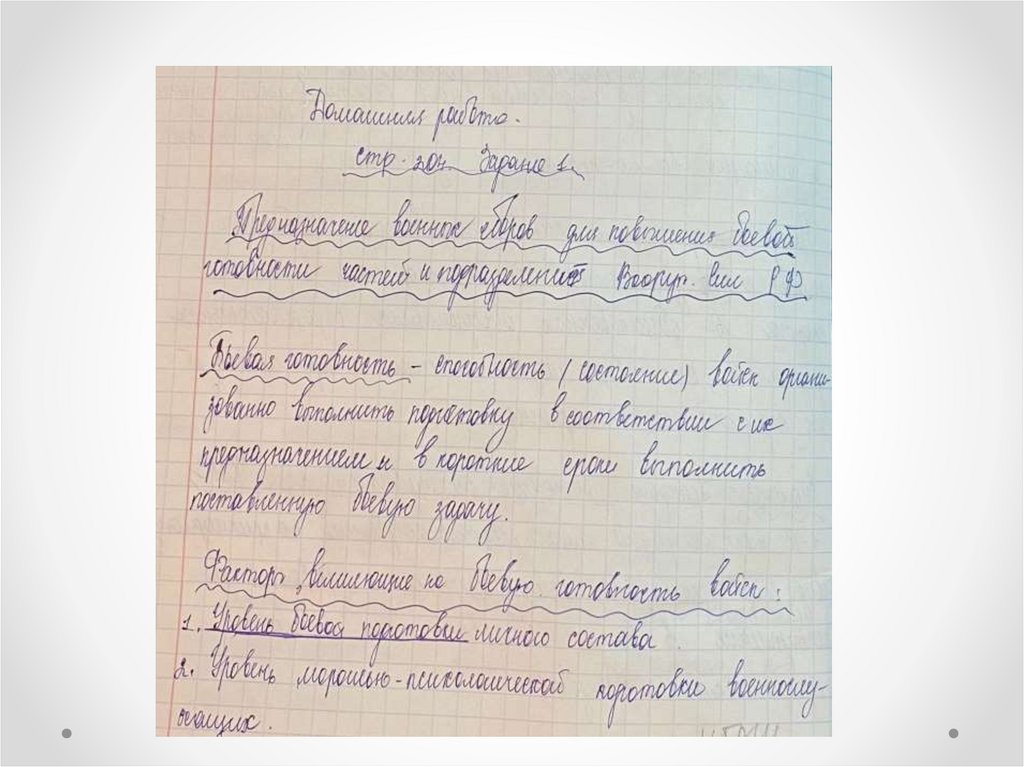 Домашняя работа.
стр. 204. Задание 1.
Предназначение военных сборов для повышения боевой
готовности частей и подразделений Вооруж. сил РФ
Боевая готовность – способность (состояние) войск органи-
зованно выполнить подготовку в соответствии с их
предназначением и в короткие сроки выполнить
поставленную боевую задачу.
Факторы, влияющие на боевую готовность войск:
1. Уровень боевой подготовки личного состава.
2. Уровень морально-психологической подготовки военнослу-
жащих.